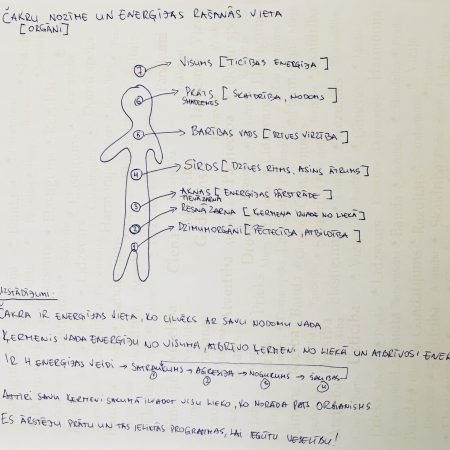 ČAKRU NOZĪME UN ENERĢIJAS RAŠANĀS VIETA
[ORGĀNI]
7 → VISUMS [TICĪBAS ENERĢIJA]
6 → PRĀTS [SKAIDRĪBA, NODOMS]
SMADZENES
5 → BARĪBAS VADS [DZĪVES VIRZĪBA]
4 → SIRDS [DZĪVES RITMS, ASINS ĀTRUMS]
3 → AKNAS [ENERĢIJAS PĀRSTRĀDE]
TIEVĀ ZARNA
2 → RESNĀ ZARNA [ĶERMEŅA IZVADE NO LIEKĀ]
1 → DZIMUMORGĀNI [PĒCTECĪBA, ATBILDĪBA]
UZSTĀDĪJUMI:
ČAKRA IR ENERĢIJAS VIETA, KO CILVĒKS AR SAVU NODOMU VADA
ĶERMENIS VADA ENERĢIJU NO VISUMA, ATBRĪVO ĶERMENI NO LIEKĀ UN ATBRĪVOŠI ENER
IR 4 ENERĢIJAS VEIDI → SATRAUKUMS → AGRESIJA → NOGURUMS → SAJŪTAS
1 2 3 4
ATTĪRI SAVU ĶERMENI SĀKUMĀ IZVADOT VISU LIEKO, KO NORĀDA PATS ORGANISMS
ES ĀRSTĒJU PRĀTU UN TĀS IELIKTĀS PROGRAMMAS, LAI IEGŪTU VESELĪBU!